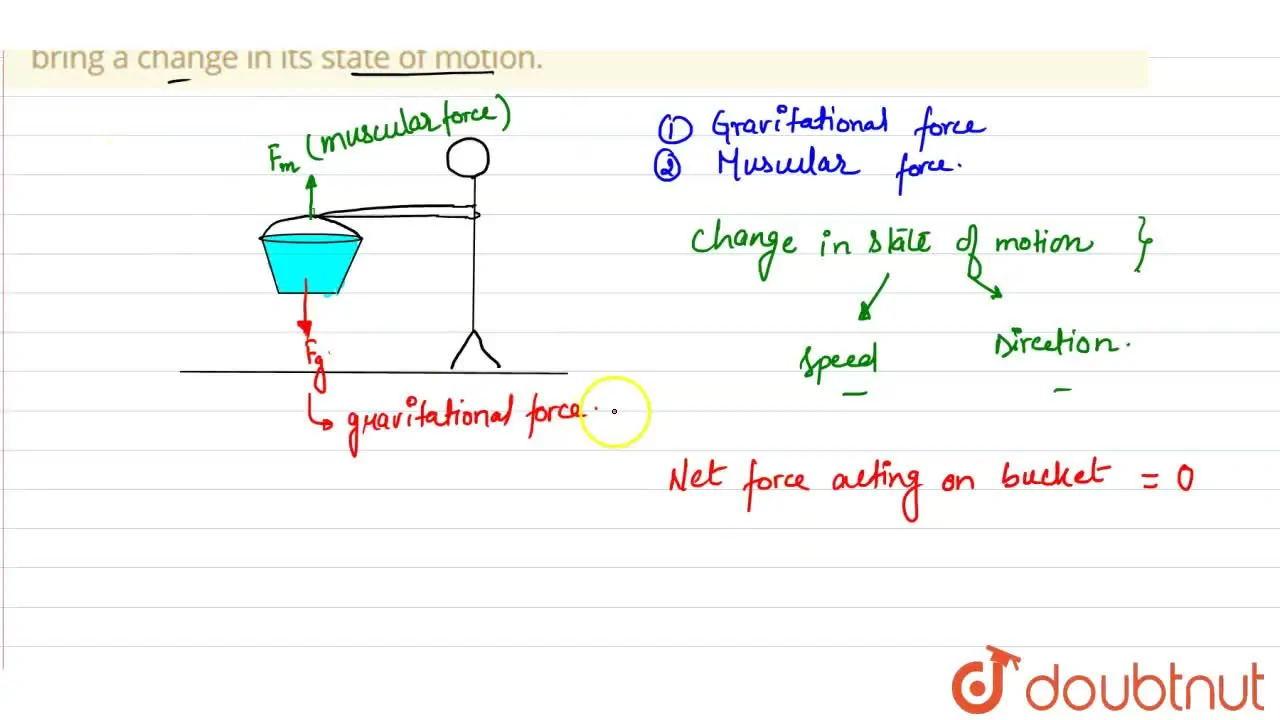 bring a change in its state of motion.
Fm (muscular force)
Fg
gravitational force.
① Gravitational force
② Muscular force.
Change in state of motion }
Speed
Direction.
Net force acting on bucket = 0
doubtnut